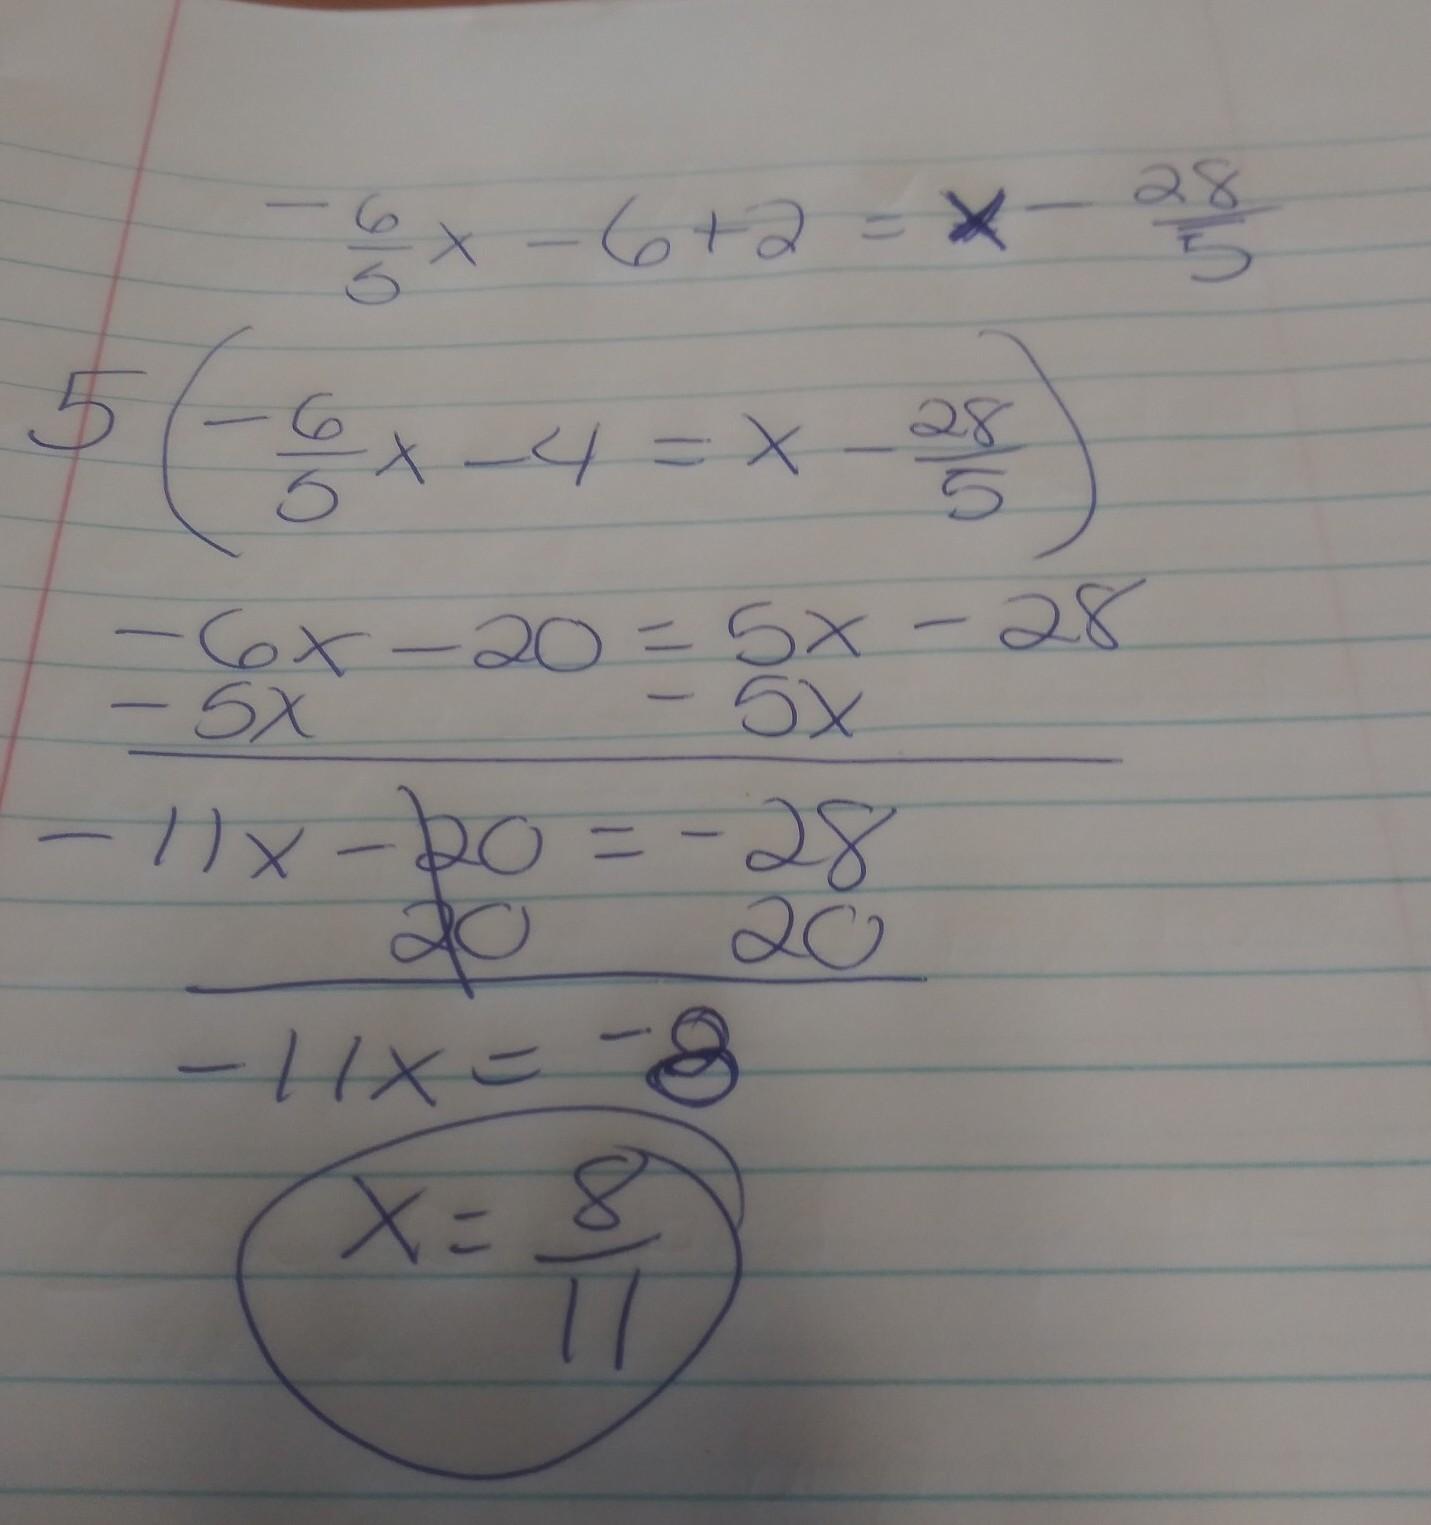 -6/5 x - 6 + 2 = x - 28/5
5 ( -6/5 x - 4 = x - 28/5 )
-6x - 20 = 5x - 28
-5x - 5x
-11x - 20 = -28
20 20
-11x = -8
x = 8/11